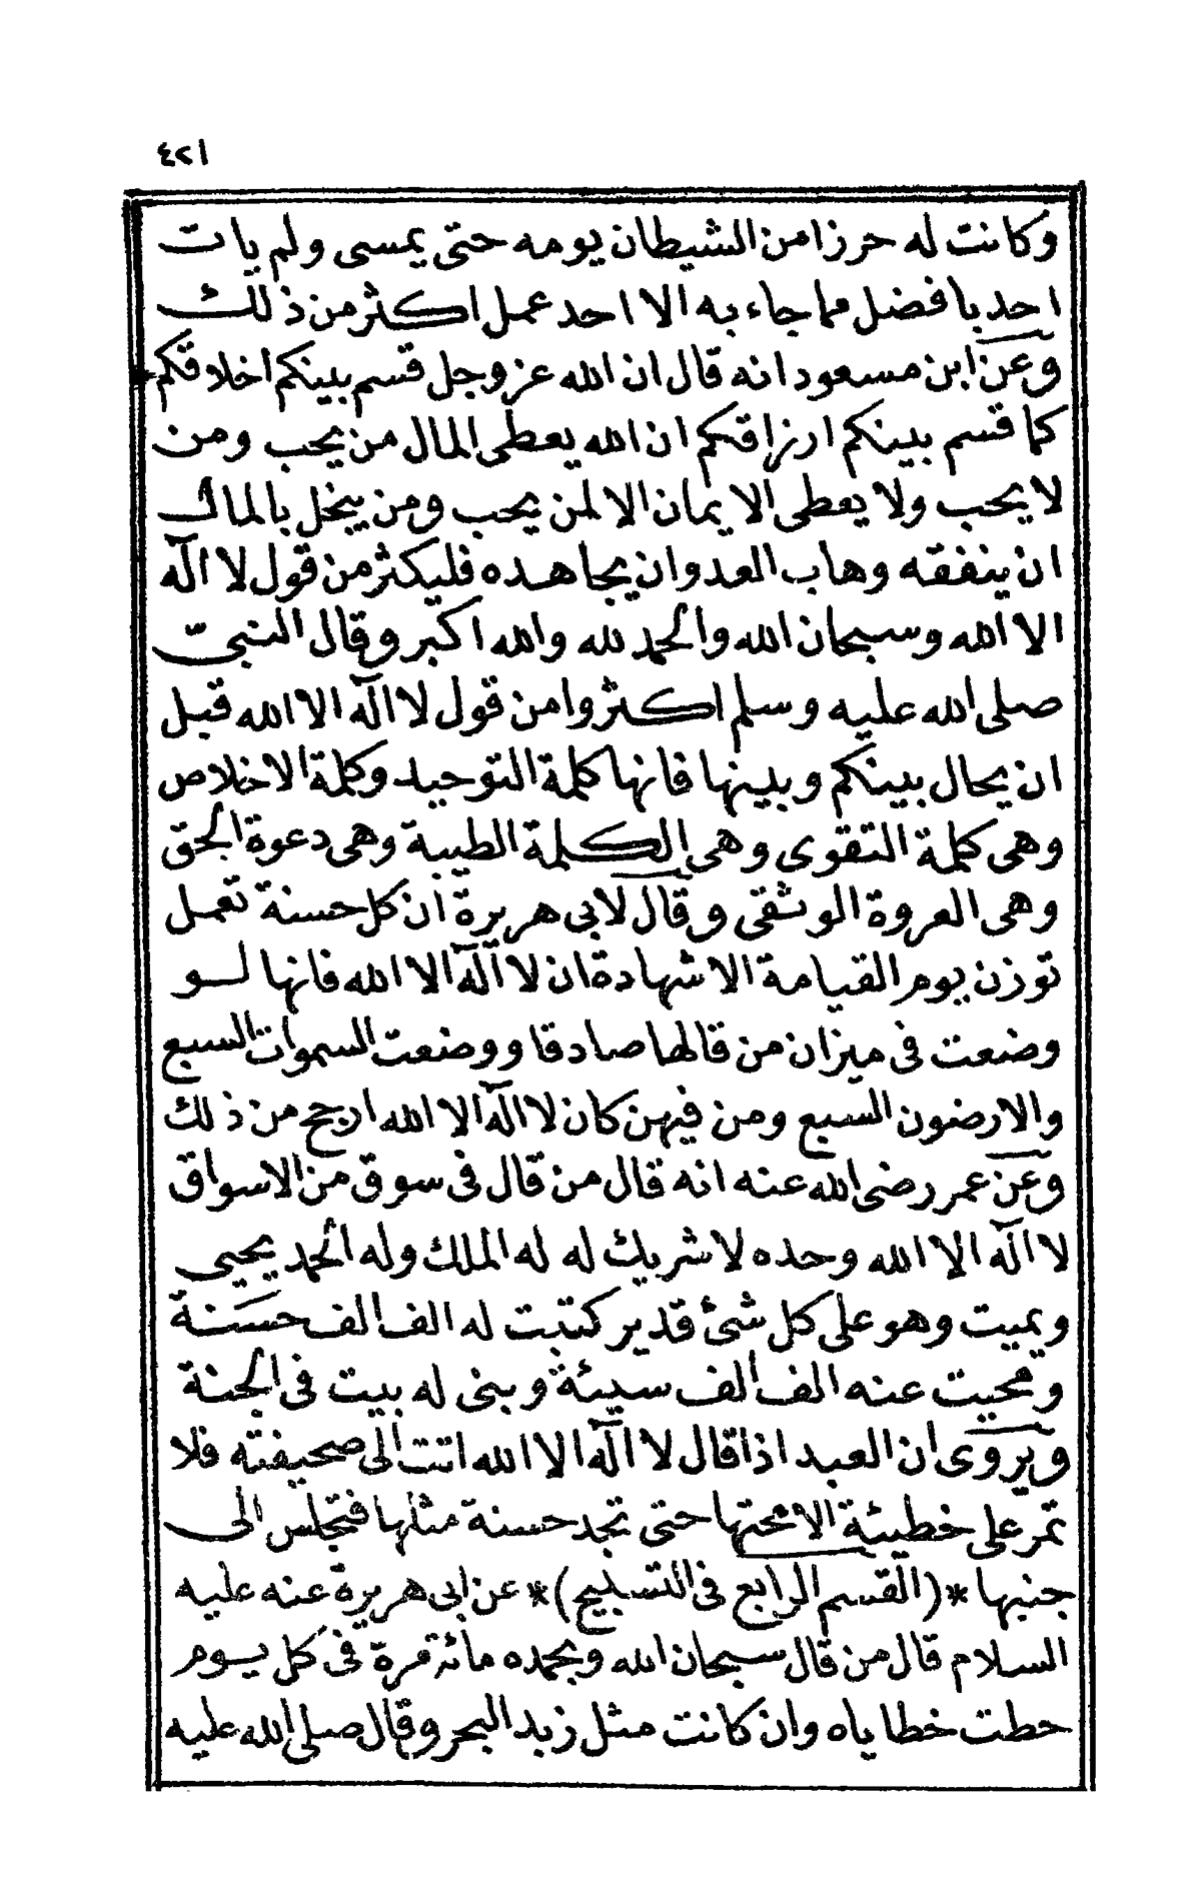 ٤٢١
وكانت له حرزا من الشيطان يومه حتى يمسى ولم يات
احد بافضل مما جاء به الا احد عمل اكثر من ذلك
وعن ابن مسعود انه قال ان الله عز وجل قسم بينكم اخلاقكم
كما قسم بينكم ارزاقكم ان الله يعطى المال من يحب ومن
لا يحب ولا يعطى الايمان الا لمن يحب ومن يبخل بالمال
ان ينفقه وهاب العدو ان يجاهده فليكثر من قول لا اله
الا الله وسبحان الله والحمد لله والله اكبر وقال النبىّ
صلى الله عليه وسلم اكثروا من قول لا اله الا الله قبل
ان يحال بينكم وبينها فانها كلمة التوحيد وكلمة الاخلاص
وهى كلمة التقوى وهى الكلمة الطيبة وهى دعوة الحق
وهى العروة الوثقى وقال لابى هريرة ان كل حسنة تعمل
توزن يوم القيامة الا شهادة ان لا اله الا الله فانها لو
وضعت فى ميزان من قالها صادقا ووضعت السموات السبع
والارضون السبع ومن فيهن كان لا اله الا الله ارجح من ذلك
وعن عمر رضى الله عنه انه قال من قال فى سوق من الاسواق
لا اله الا الله وحده لا شريك له له الملك وله الحمد يحيى
ويميت وهو على كل شئ قدير كتبت له الف الف حسَنة
ومحيت عنه الف الف سيئة وبنى له بيت فى الجنة
ويروى ان العبد اذا قال لا اله الا الله اتت الى صحيفته فلا
تمر على خطيئة الا محتها حتى تجد حسنة مثلها فتجلس الى
جنبها *(القسم الرابع فى التسبيح)* عن ابى هريرة عنه عليه
السلام قال من قال سبحان الله وبحمده مائة مرة فى كل يوم
حطت خطاياه وان كانت مثل زبد البحر وقال صلى الله عليه